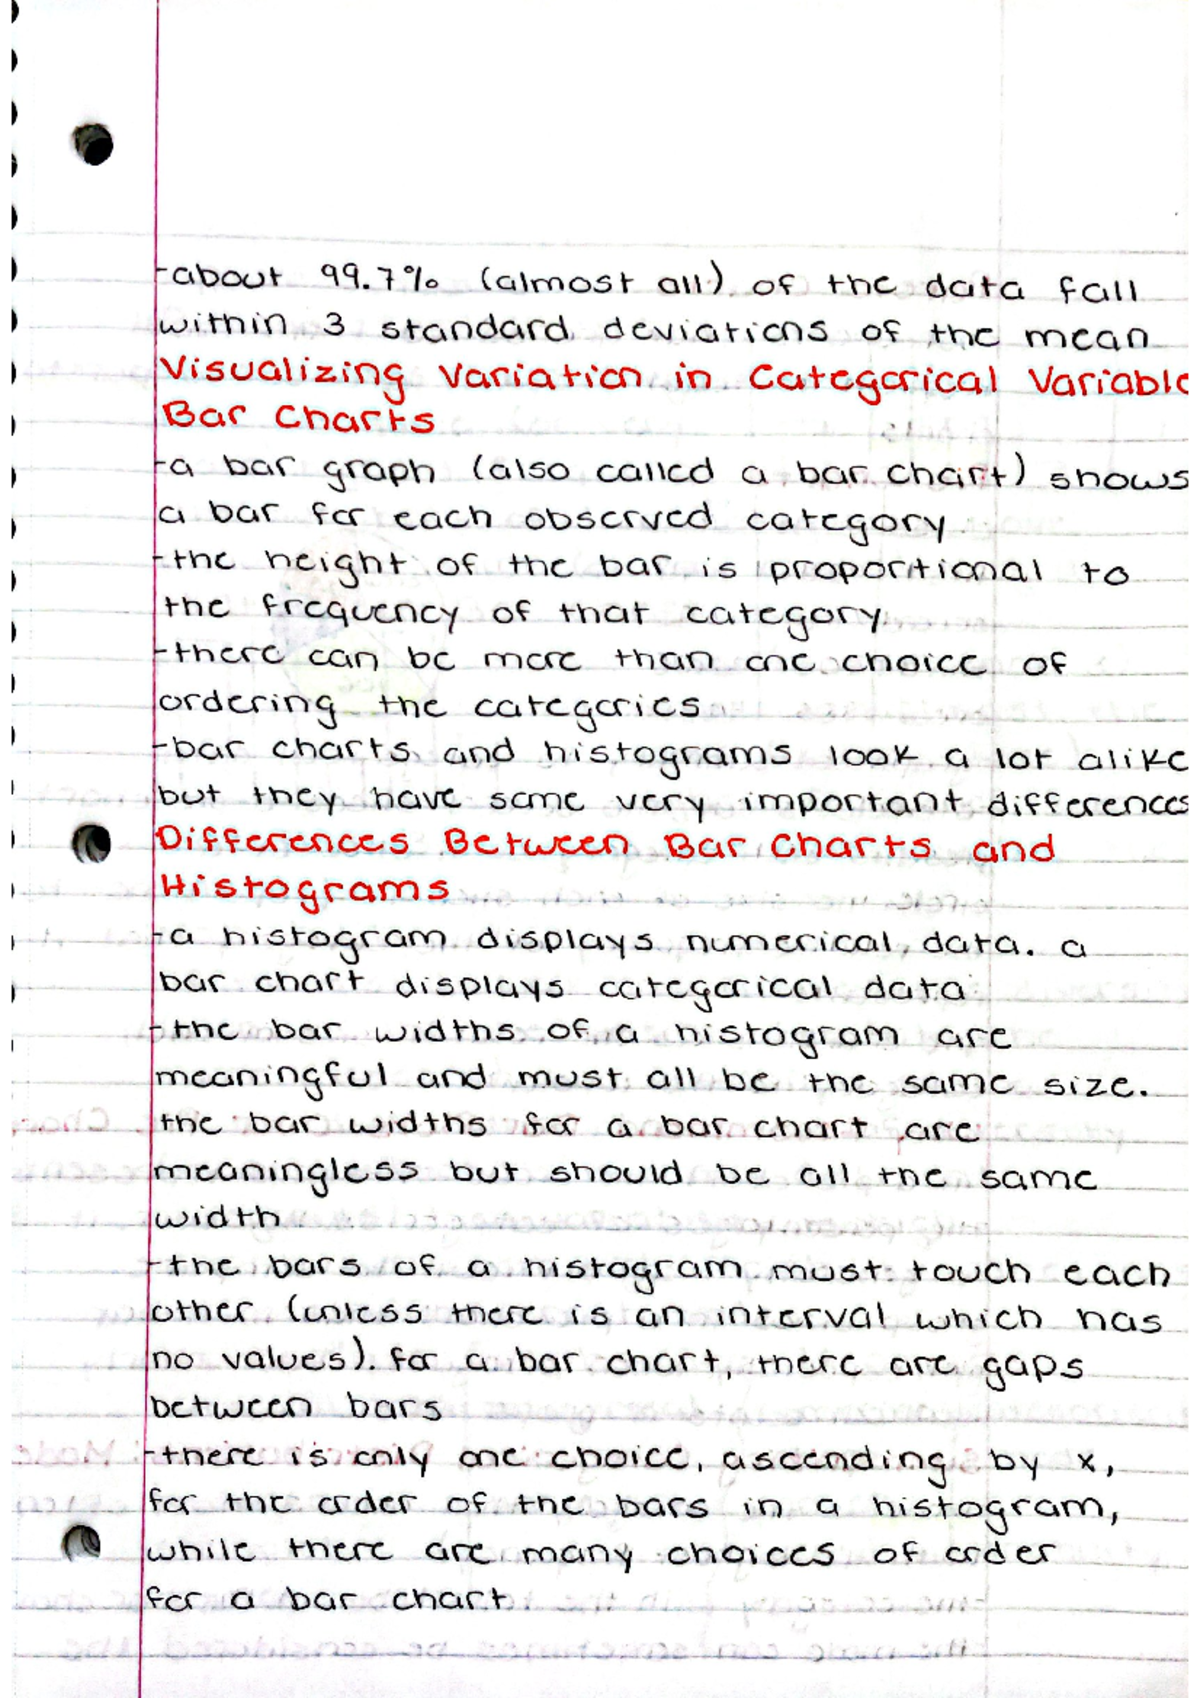 -about 99.7% (almost all) of the data fall
within 3 standard deviations of the mean
Visualizing Variation in Categorical Variable
Bar Charts
-a bar graph (also called a bar chart) shows
a bar for each observed category
-the height of the bar is proportional to
the frequency of that category
-there can be more than one choice of
ordering the categories
-bar charts and histograms look a lot alike
but they have some very important differences
Differences Between Bar Charts and
Histograms
-a histogram displays numerical data. a
bar chart displays categorical data
-the bar widths of a histogram are
meaningful and must all be the same size.
the bar widths for a bar chart are
meaningless but should be all the same
width
-the bars of a histogram must touch each
other (unless there is an interval which has
no values). for a bar chart, there are gaps
between bars
-there is only one choice, ascending by x,
for the order of the bars in a histogram,
while there are many choices of order
for a bar chart